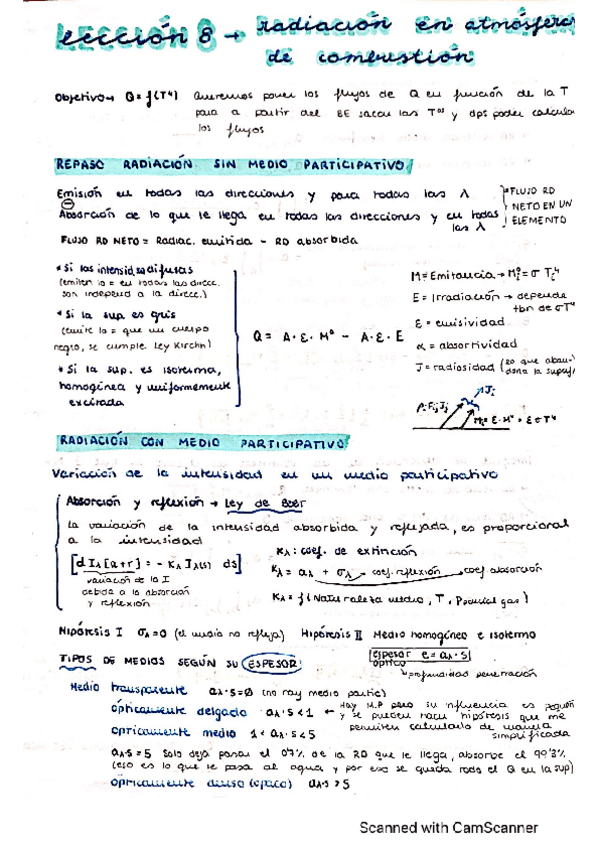 Lección 8 → radiación en atmósferas
de combustión
Objetivo → Q = f(T⁴) Queremos poner los flujos de Q en función de la T
para a partir del BE sacar las Tᵒˢ y dps poder calcular
los flujos
REPASO RADIACIÓN SIN MEDIO PARTICIPATIVO
Emisión en todas las direcciones y para todas las λ
⊖
Absorción de lo que le llega en todas las direcciones y en todas
las λ
FLUJO RD
NETO EN UN
ELEMENTO
FLUJO RD NETO = Radiac. emitida - RD absorbida
* Si las intensid. difusas
(emiten lo = en todas las direcc.
son independ a la direcc.)
* Si la sup es gris
(emite lo = que un cuerpo
negro, se cumple. Ley Kirchh)
* Si la sup. es isoterma,
homogénea y uniformemente
excitada
Q = A·ε·Mº - A·ε·E
M = Emitancia → Mᵢº = σ Tᵢ⁴
E = Irradiación → depende
tbn de σT⁴
ε = emisividad
α = absortividad
J = radiosidad (lo que aban-
dona la superf
Jᵢ
RADIACIÓN CON MEDIO PARTICIPATIVO
Variación de la intensidad en un medio participativo
Absorción y reflexión → Ley de Beer
La variación de la intensidad absorbida y reflejada, es proporcional
a la intensidad
[d Iλ [a+r] = - Kλ Iλ(s) ds]
variación de la I
debida a la absorción
y reflexión
Kλ: coef. de extinción
Kλ = aλ + σλ → coef. reflexión → coef absorción
Kλ = f (Naturaleza medio, T, Pparcial gas)
Hipótesis I σλ=0 (el medio no refleja) Hipótesis II Medio homogéneo e isotermo
TIPOS DE MEDIOS SEGÚN SU ESPESOR:
espesor e = aλ·s
óptico
→ profundidad penetración
Medio transparente aλ·s=0 (no hay medio partic)
ópticamente delgado aλ·s<1 ← Hay M.P pero su influencia es pequeñ
y se pueden hacer hipótesis que me
permiten calcularlo de manera
simplificada
ópticamente medio 1<aλ·s<5
aλ·s=5 Solo deja pasar el 0'7% de la RD que le llega, absorbe el 99'3%
(eso es lo que le pasa al agua y por eso se queda todo el Q en la sup)
ópticamente denso (opaco) aλ·s>5
Scanned with CamScanner